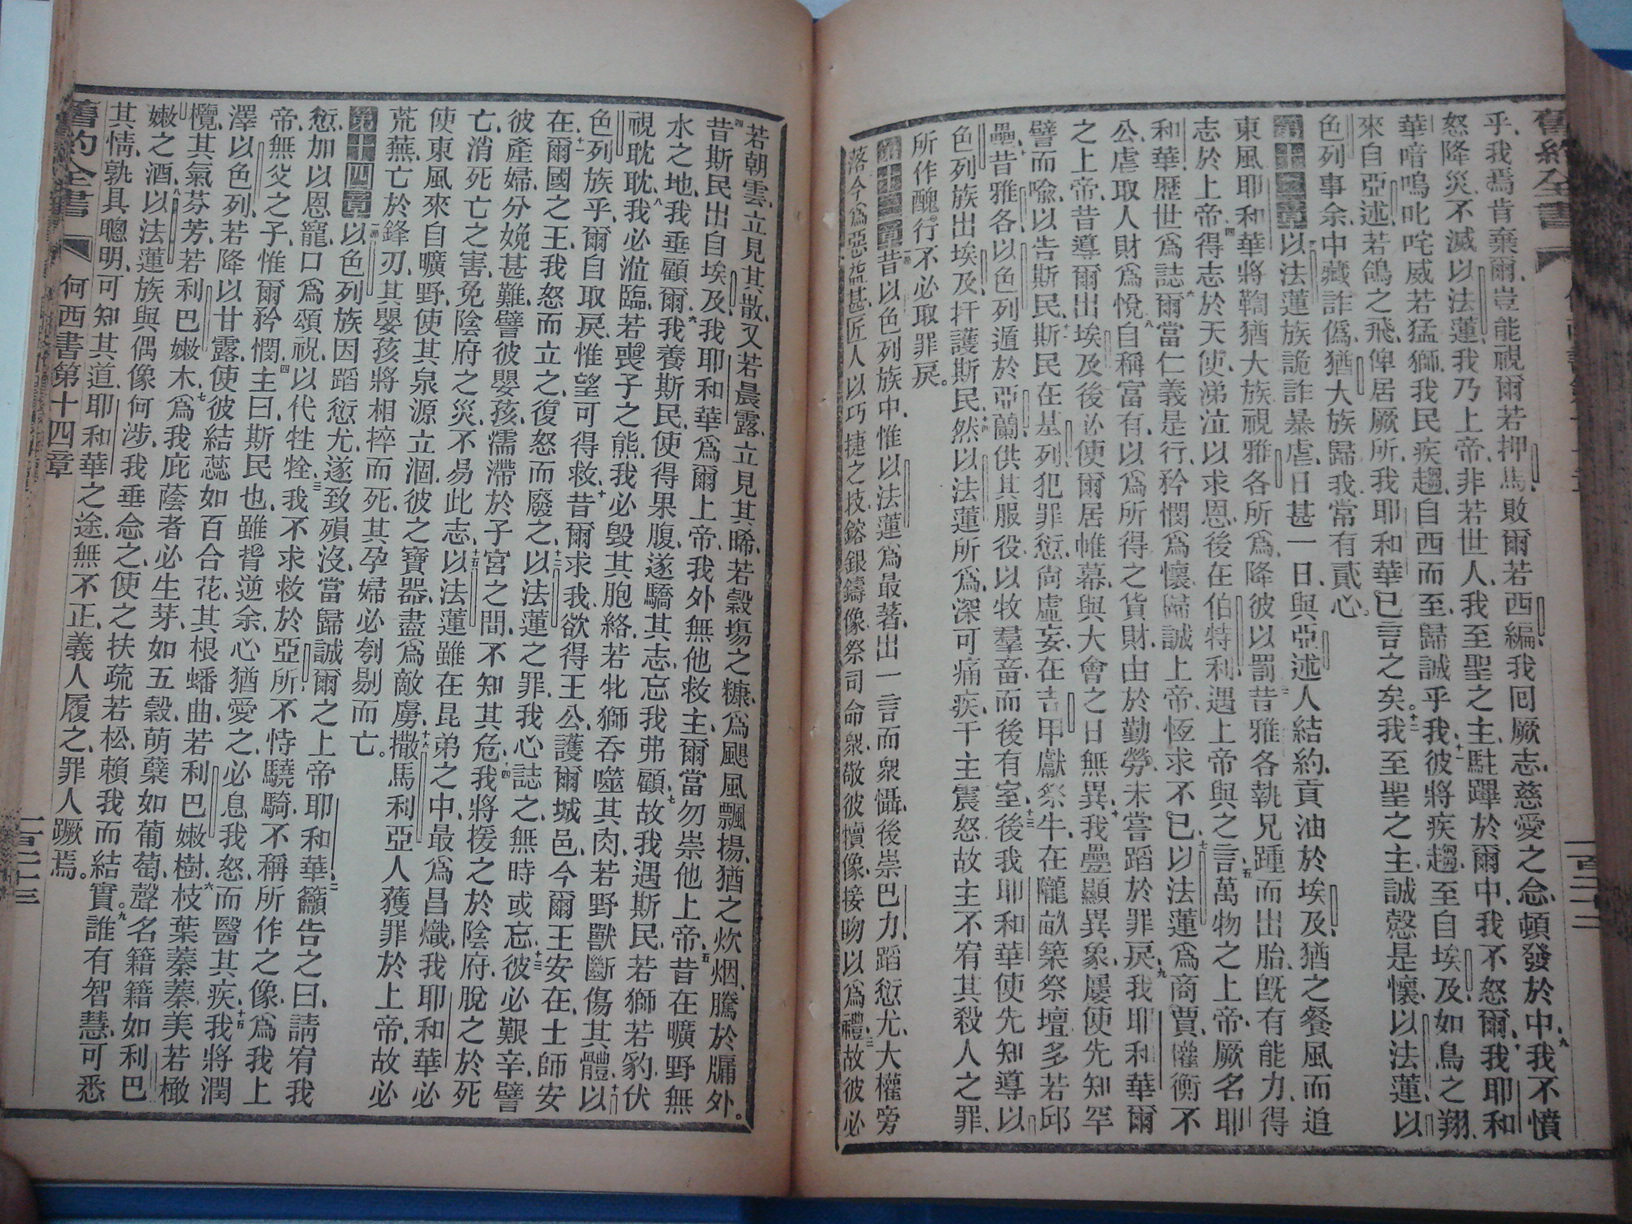 舊約全書
乎、我焉肯棄爾、豈能視爾若押馬、敗爾若西編、我囘厥志、慈愛之念、頓發於中、我不憤
怒降災、不滅以法蓮、我乃上帝、非若世人、我至聖之主、駐蹕於爾中、我不怒爾、我耶和
華喑嗚叱咤、威若猛獅、我民疾趨、自西而至、歸誠乎我、彼將疾趨至自埃及、如鳥之翔、
來自亞述、若鴿之飛、俾居厥所、我耶和華已言之矣、我至聖之主、誠慤是懷、以法蓮以
色列事余、中藏詐僞、猶大族歸我、常有貳心。
第十二章以法蓮族詭詐暴虐、日甚一日、與亞述人結約、貢油於埃及、猶之餐風而追
東風、耶和華將鞫猶大族、視雅各所爲、降彼以罰、昔雅各執兄踵而出胎、旣有能力、得
志於上帝、得志於天使、涕泣以求恩、後在伯特利遇上帝、與之言、萬物之上帝、厥名耶
和華、歷世爲誌、爾當仁義是行、矜憫爲懷、歸誠上帝、恆求不已、以法蓮爲商賈、權衡不
公、虐取人財爲悅、自稱富有、以爲所得之貨財、由於勤勞、未嘗蹈於罪戾、我耶和華爾
之上帝、昔導爾出埃及、後必使爾居帷幕、與大會之日無異、我疊顯異象、屢使先知罕
譬而喻、以告斯民、斯民在基列犯罪愆、尙虛妄、在吉甲獻祭牛、在隴畝築祭壇、多若邱
壘、昔雅各以色列遁於亞蘭、供其服役、以牧羣畜、而後有室、後我耶和華使先知導以
色列族出埃及、扞護斯民、然以法蓮所爲、深可痛疾、干主震怒、故主不宥其殺人之罪、
所作醜行、不必取罪戾。
第十三章昔以色列族中、惟以法蓮爲最著、出一言而衆懾、後崇巴力、蹈愆尤、大權旁
落、今爲惡益甚、匠人以巧捷之技、鎔銀鑄像、祭司命衆敬彼犢像、接吻以爲禮、故彼必
若朝雲、立見其散、又若晨露、立見其晞、若穀塲之糠、爲颶風飄揚、猶之炊烟、騰於牗外。
昔斯民出自埃及、我耶和華爲爾上帝、我外無他救主、爾當勿崇他上帝、昔在曠野無
水之地、我垂顧爾、我養斯民、使得果腹、遂驕其志忘我弗顧、故我遇斯民、若獅若豹、伏
視眈眈、我必涖臨、若喪子之能、我必毀其胞絡、若牝獅吞噬其肉、若野獸斷傷其體、以
色列族乎、爾自取戾、惟望可得救、昔爾求我、欲得王公、護爾城邑、今爾王安在、士師安
在、爾國之王、我怒而立之、復怒而廢之、以法蓮之罪、我心誌之、無時或忘、彼必艱辛、譬
彼產婦、分娩甚難、譬彼嬰孩、濡滯於子宮之間、不知其危、我將援之於陰府、脫之於死
亡、消死亡之害、免陰府之災、不易此志、以法蓮雖在昆弟之中、最爲昌熾、我耶和華必
使東風來自曠野、使其泉源立涸、彼之寶器、盡爲敵虜、撒馬利亞人、獲罪於上帝、故必
荒蕪、亡於鋒刃、其嬰孩將相捽而死、其孕婦必刳剔而亡。
第十四章以色列族、因蹈愆尤、遂致殞沒、當歸誠爾之上帝耶和華、籲告之曰、請宥我
愆、加以恩寵、口爲頌祝、以代牲牷、我不求救於亞所、不恃驍騎、不稱所作之像、爲我上
帝、無父之子、惟爾矜憫、主曰、斯民也、雖背逆余、心猶愛之、必息我怒、而醫其疾、我將潤
澤以色列、若降以甘露、使彼結蕊、如百合花、其根蟠曲、若利巴嫩樹、枝葉蓁蓁、美若橄
欖、其氣芬芳、若利巴嫩木、爲我庇蔭者、必生芽、如五穀、萌櫱如葡萄、聲名籍籍、如利巴
嫩之酒、以法蓮族與偶像何涉、我垂念之、使之扶疏若松、賴我而結實、誰有智慧、可悉
其情、孰具聰明、可知其道、耶和華之途、無不正、義人履之、罪人蹶焉。
舊約全書 何西書第十四章 一百二十三